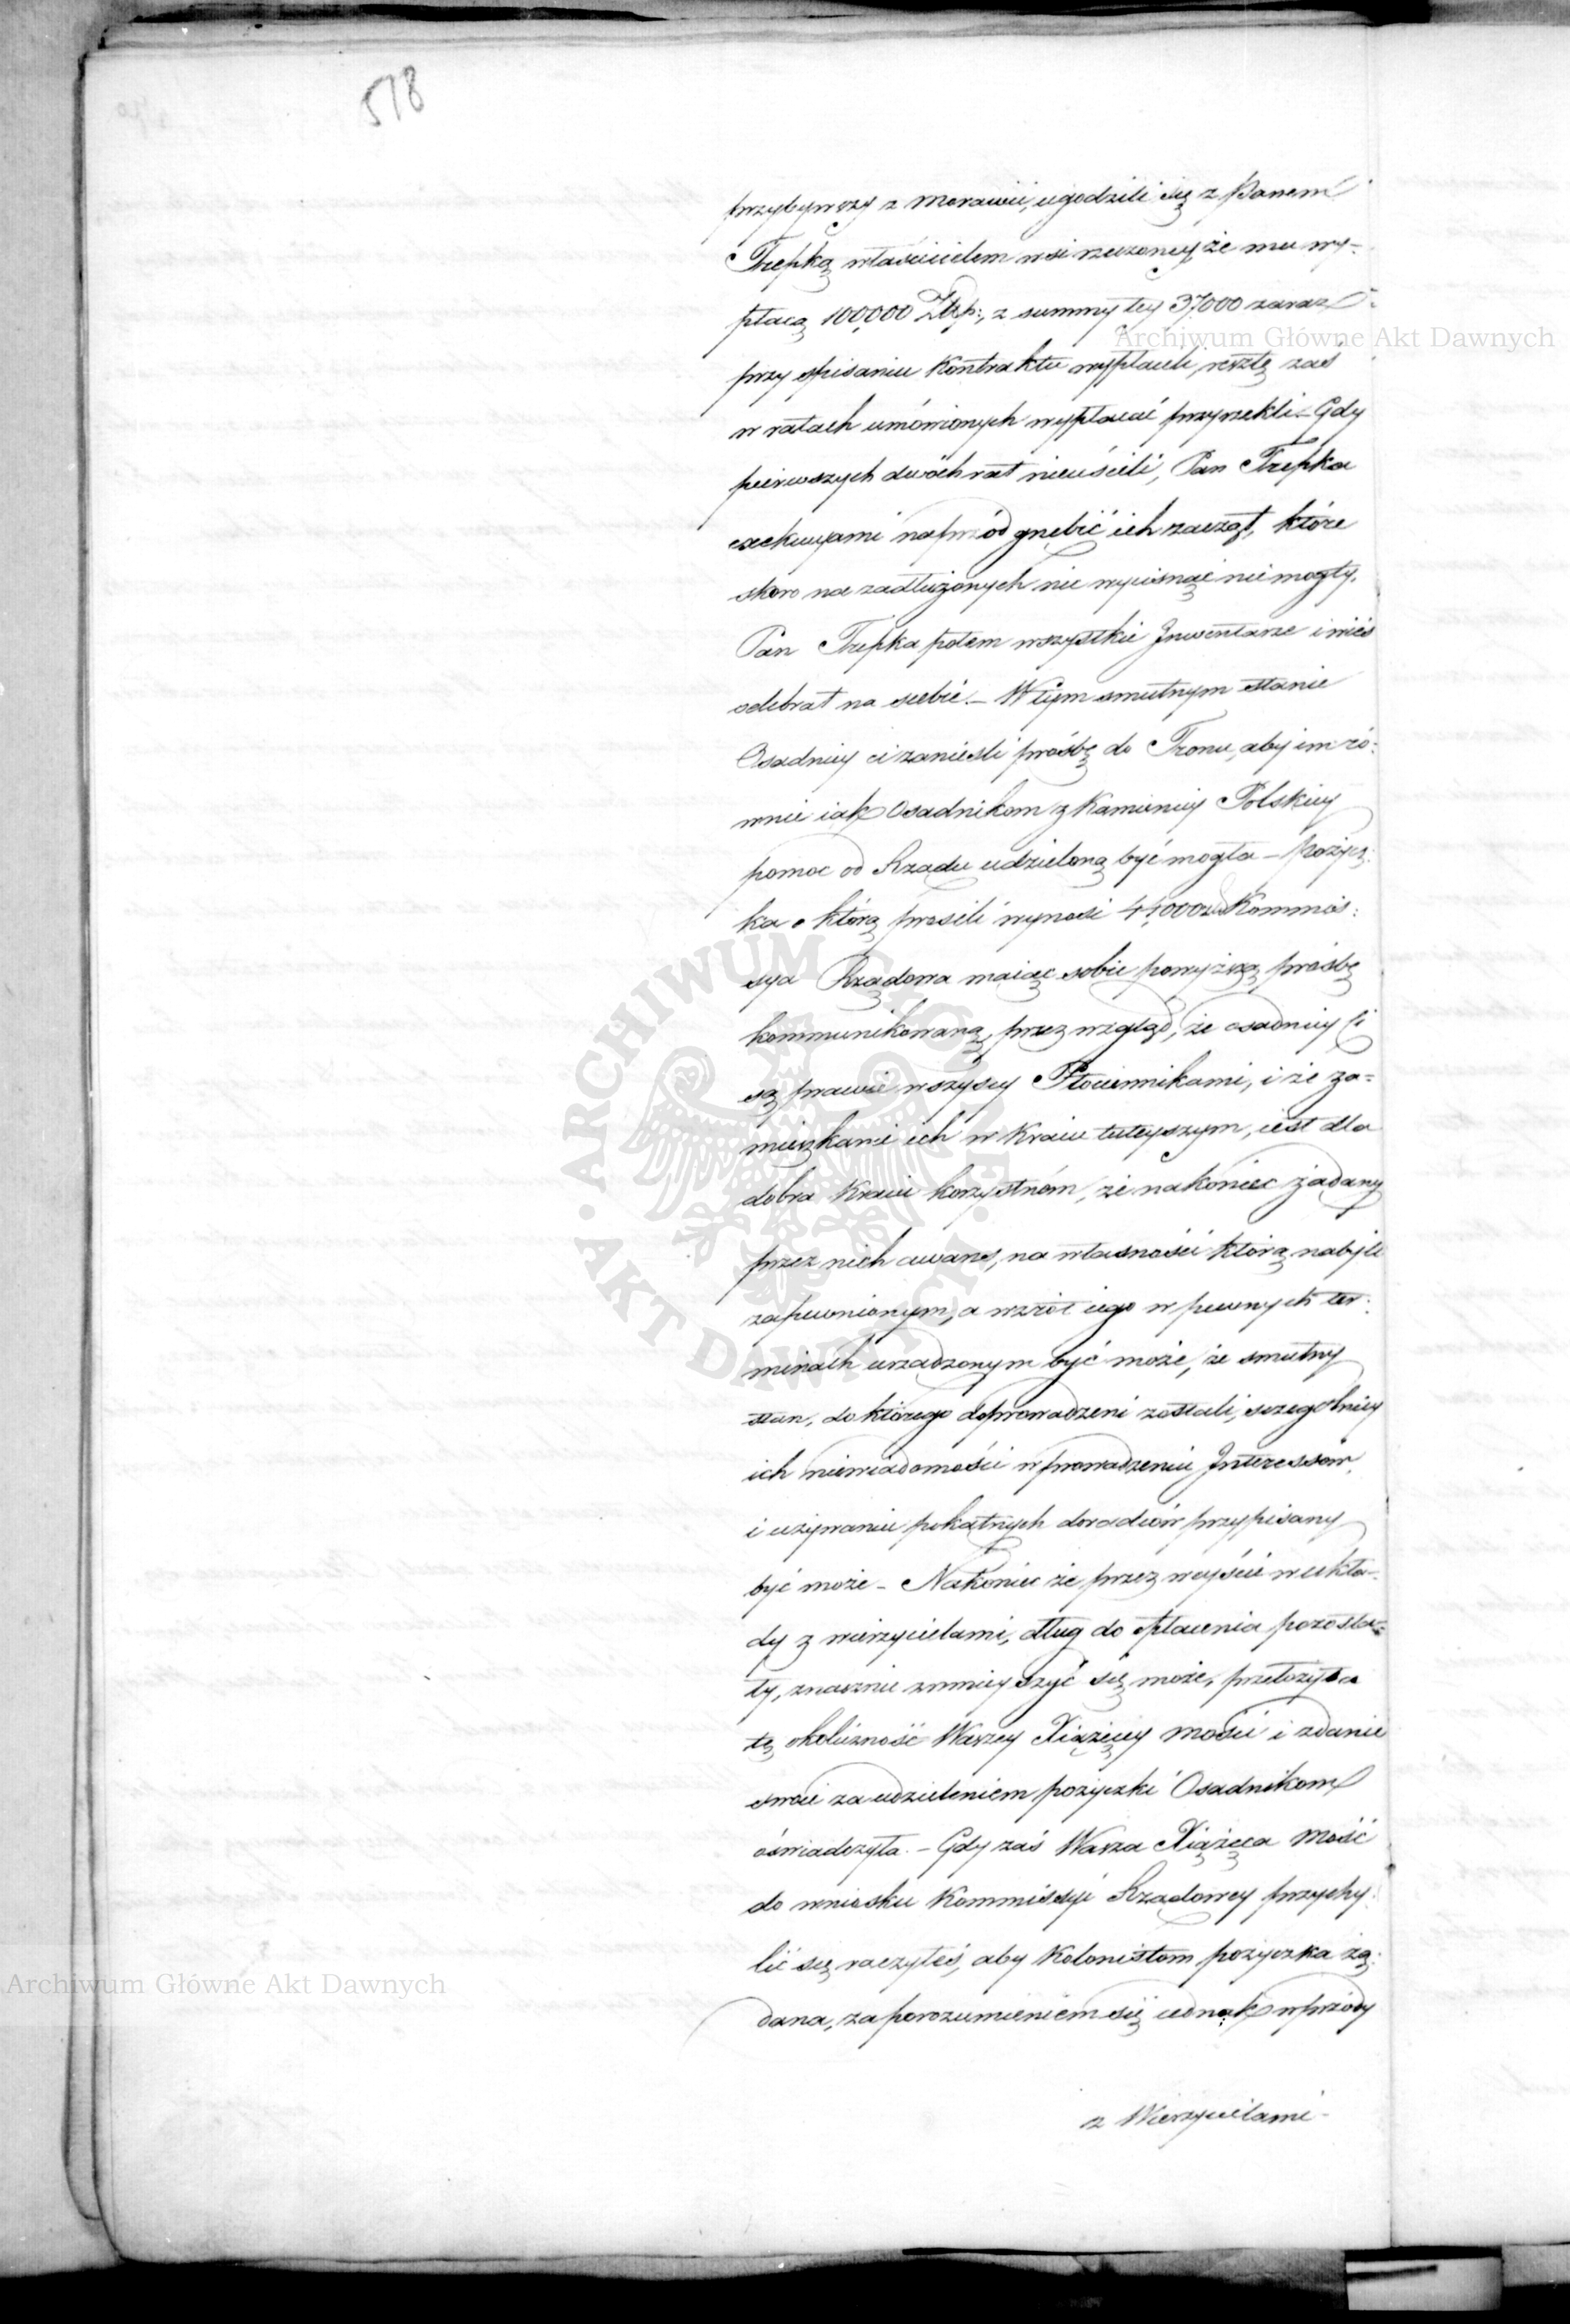 578
przybywszy z Morawii, ugodzili się z Panem
Trepką właścicielem wsi rzeczoney, że mu wy-
płacą 100,000 Złtp:, z summy tey 37,000 zaraz
Archiwum Główne Akt Dawnych
przy spisaniu Kontraktu wypłacili, resztę zaś
w ratach umówionych wypłacać przyrzekli. – Gdy
pierwszych dwóch rat nieuścili, Pan Trepka
exekucyami naprzód gnębić ich zaczął, które
skoro na zadłużonych nic wycisnąć nie mogły,
Pan Trepka potem wszystkie Inwentarze i wieś
odebrał na siebie. – W tym smutnym stanie
Osadnicy ci zanieśli prośbę do Tronu, aby im ró-
wnie iak Osadnikom z Kamienicy Polskiey
pomoc od Rządu udzieloną być mogła – Pożycz-
ka o którą prosili wynosi 44,000 Kommis-
sya Rządowa maiąc sobie powyższą prośbę
kommunikowaną, przez wzgląd, że osadnicy ci
są prawie wszyscy Płóciennikami, i że za-
mieszkanie ich w Kraiu tuteyszym, iest dla
dobra Kraiu korzystném, że nakoniec żądany
przez nich awans, na własności którą nabyli
zapewnionym, a wzrót iego w pewnych ter-
minach urządzonym być może, że smutny
stan, do którego doprowadzeni zostali, szczególniey
ich niewiadomości w prowadzeniu Interessów,
i używaniu pokątnych doradców przypisany
być może – Nakoniec że przez weyście w ukła-
dy z wierzycielami, dług do płacenia pozosta-
ły, znacznie zmnieyszyć się może, przełożyła
tę okoliczność Waszey Xiążęcey Mości i zdanie
swoie za udzieleniem pożyczki Osadnikom
oświadczyła. – Gdy zaś Wasza Xiążęca Mość
do wniosku Kommissyi Rządowey przychy-
lić się raczyłeś, aby Kolonistom pożyczka żą-
dana, za porozumieniem się iednak wprzódy
z Wierzycielami –
Archiwum Główne Akt Dawnych
ARCHIWUM GŁÓWNE · AKT DAWNYCH ·